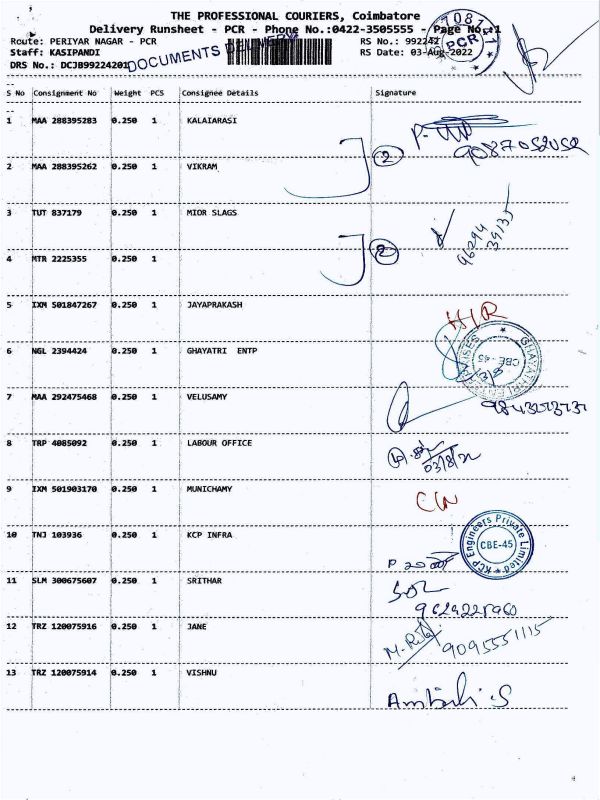 THE PROFESSIONAL COURIERS, Coimbatore
Delivery Runsheet - PCR - Phone No.:0422-3505555 - Page No.:1
Route: PERIYAR NAGAR - PCR RS No.: 992242
Staff: KASIPANDI RS Date: 03-Aug-2022
DRS No.: DCJB99224201
DOCUMENTS DELIVERY
PCR
S No Consignment No Weight PCS Consignee Details Signature
1 MAA 288395283 0.250 1 KALAIARASI
2 MAA 288395262 0.250 1 VIKRAM
2
3 TUT 837179 0.250 1 MIOR SLAGS
96294
39135
2
4 MTR 2225355 0.250 1
5 IXM 501847267 0.250 1 JAYAPRAKASH
H/R
6 NGL 2394424 0.250 1 GHAYATRI ENTP
GHAYATHRI ENTERPRISES
CBE-45
7 MAA 292475468 0.250 1 VELUSAMY
8 TRP 4085092 0.250 1 LABOUR OFFICE
03/8/22
9 IXM 501903170 0.250 1 MUNICHAMY
10 TNJ 103936 0.250 1 KCP INFRA
KCP Engineers Private Limited
CBE-45
11 SLM 300675607 0.250 1 SRITHAR
12 TRZ 120075916 0.250 1 JANE
9095551115
13 TRZ 120075914 0.250 1 VISHNU